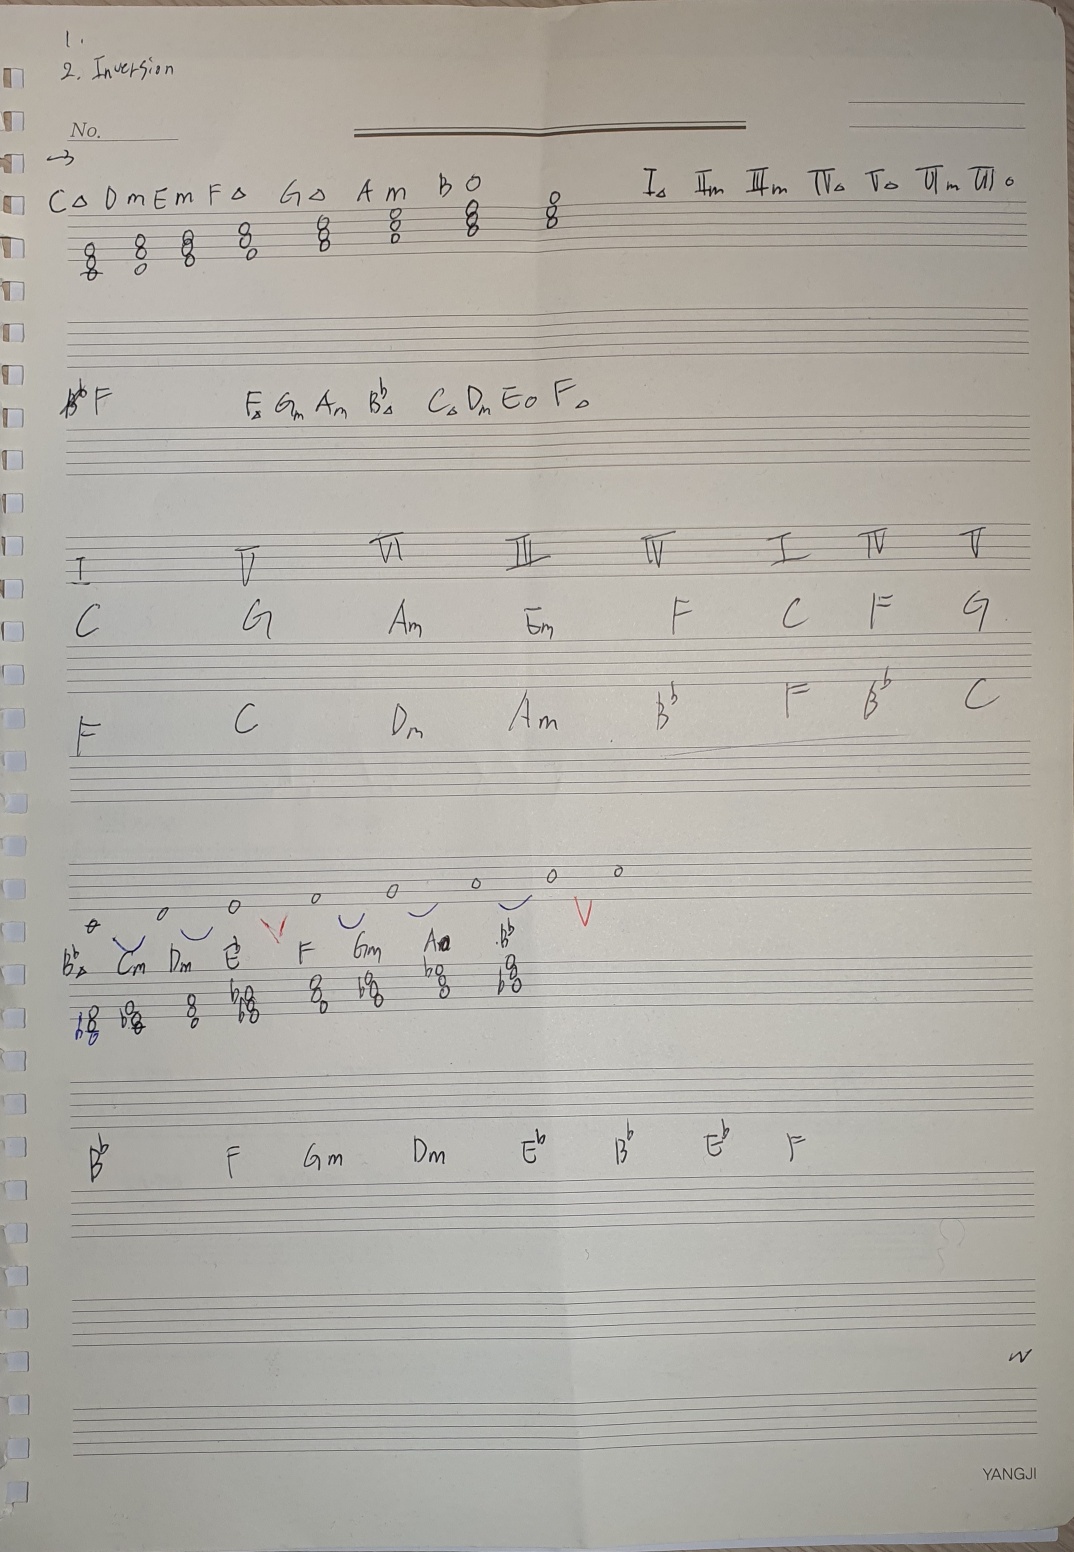 1.
2. Inversion
No.
C△ Dm Em F△ G△ Am B○ I△ IIm IIIm IV△ V△ VIm VII○
F F△ Gm Am B♭△ C△ Dm E○ F△
I V VI III IV I IV V
C G Am Em F C F G
F C Dm Am B♭ F B♭ C
B♭△ Cm Dm E♭ F Gm A○ B♭
B♭ F Gm Dm E♭ B♭ E♭ F
YANGJI